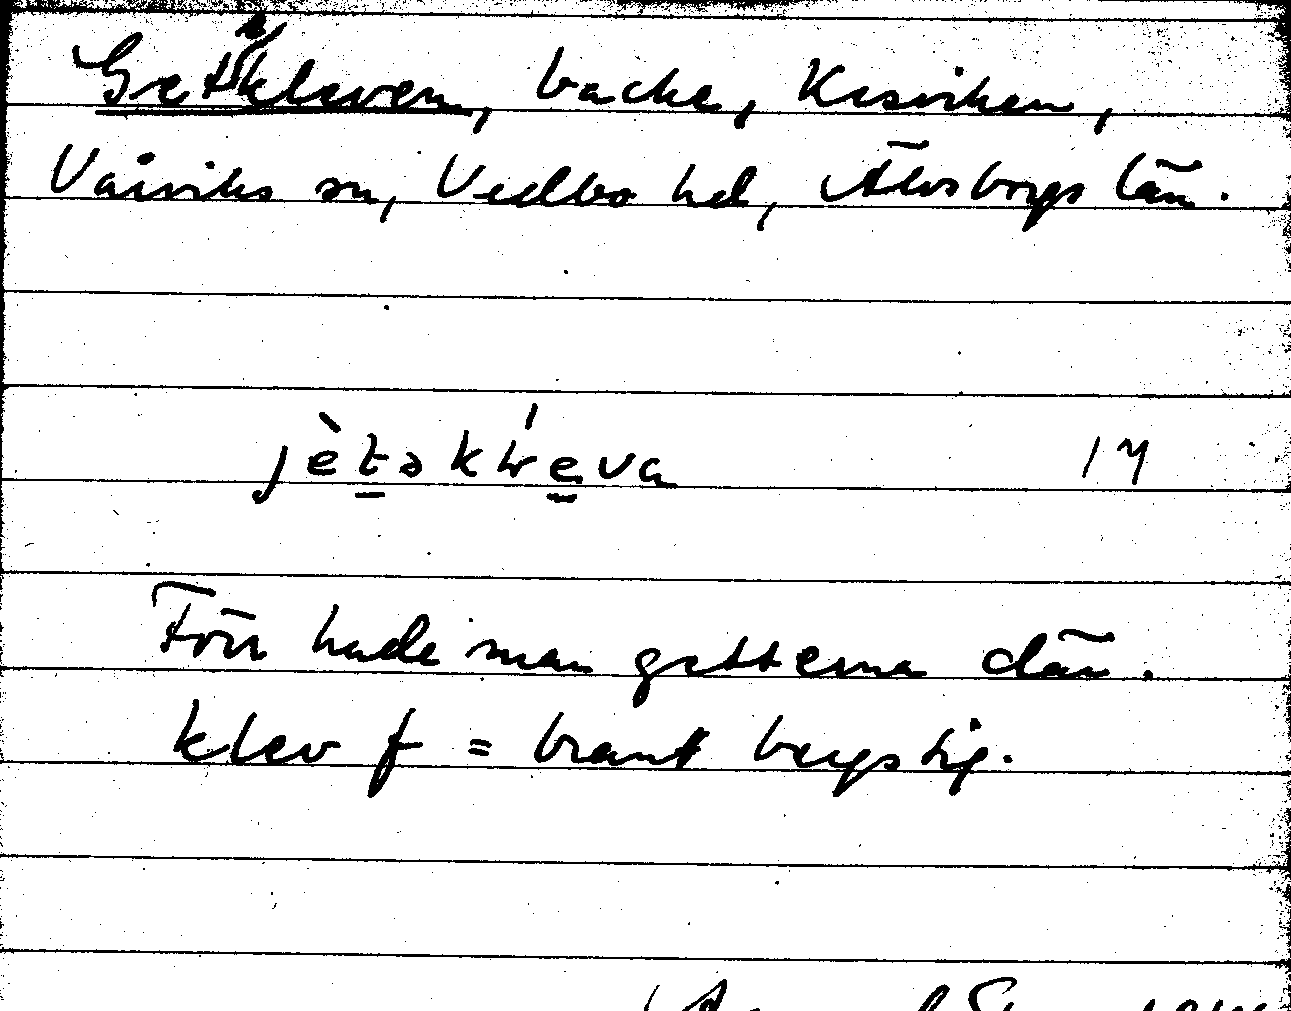 Getekleven, backe, Kesviken,
Vårviks sn, Vedbo hd, Älvsborgs län.
jètəkl̥éva 17
Förr hade man getterna där.
klev f = brant bergstig.